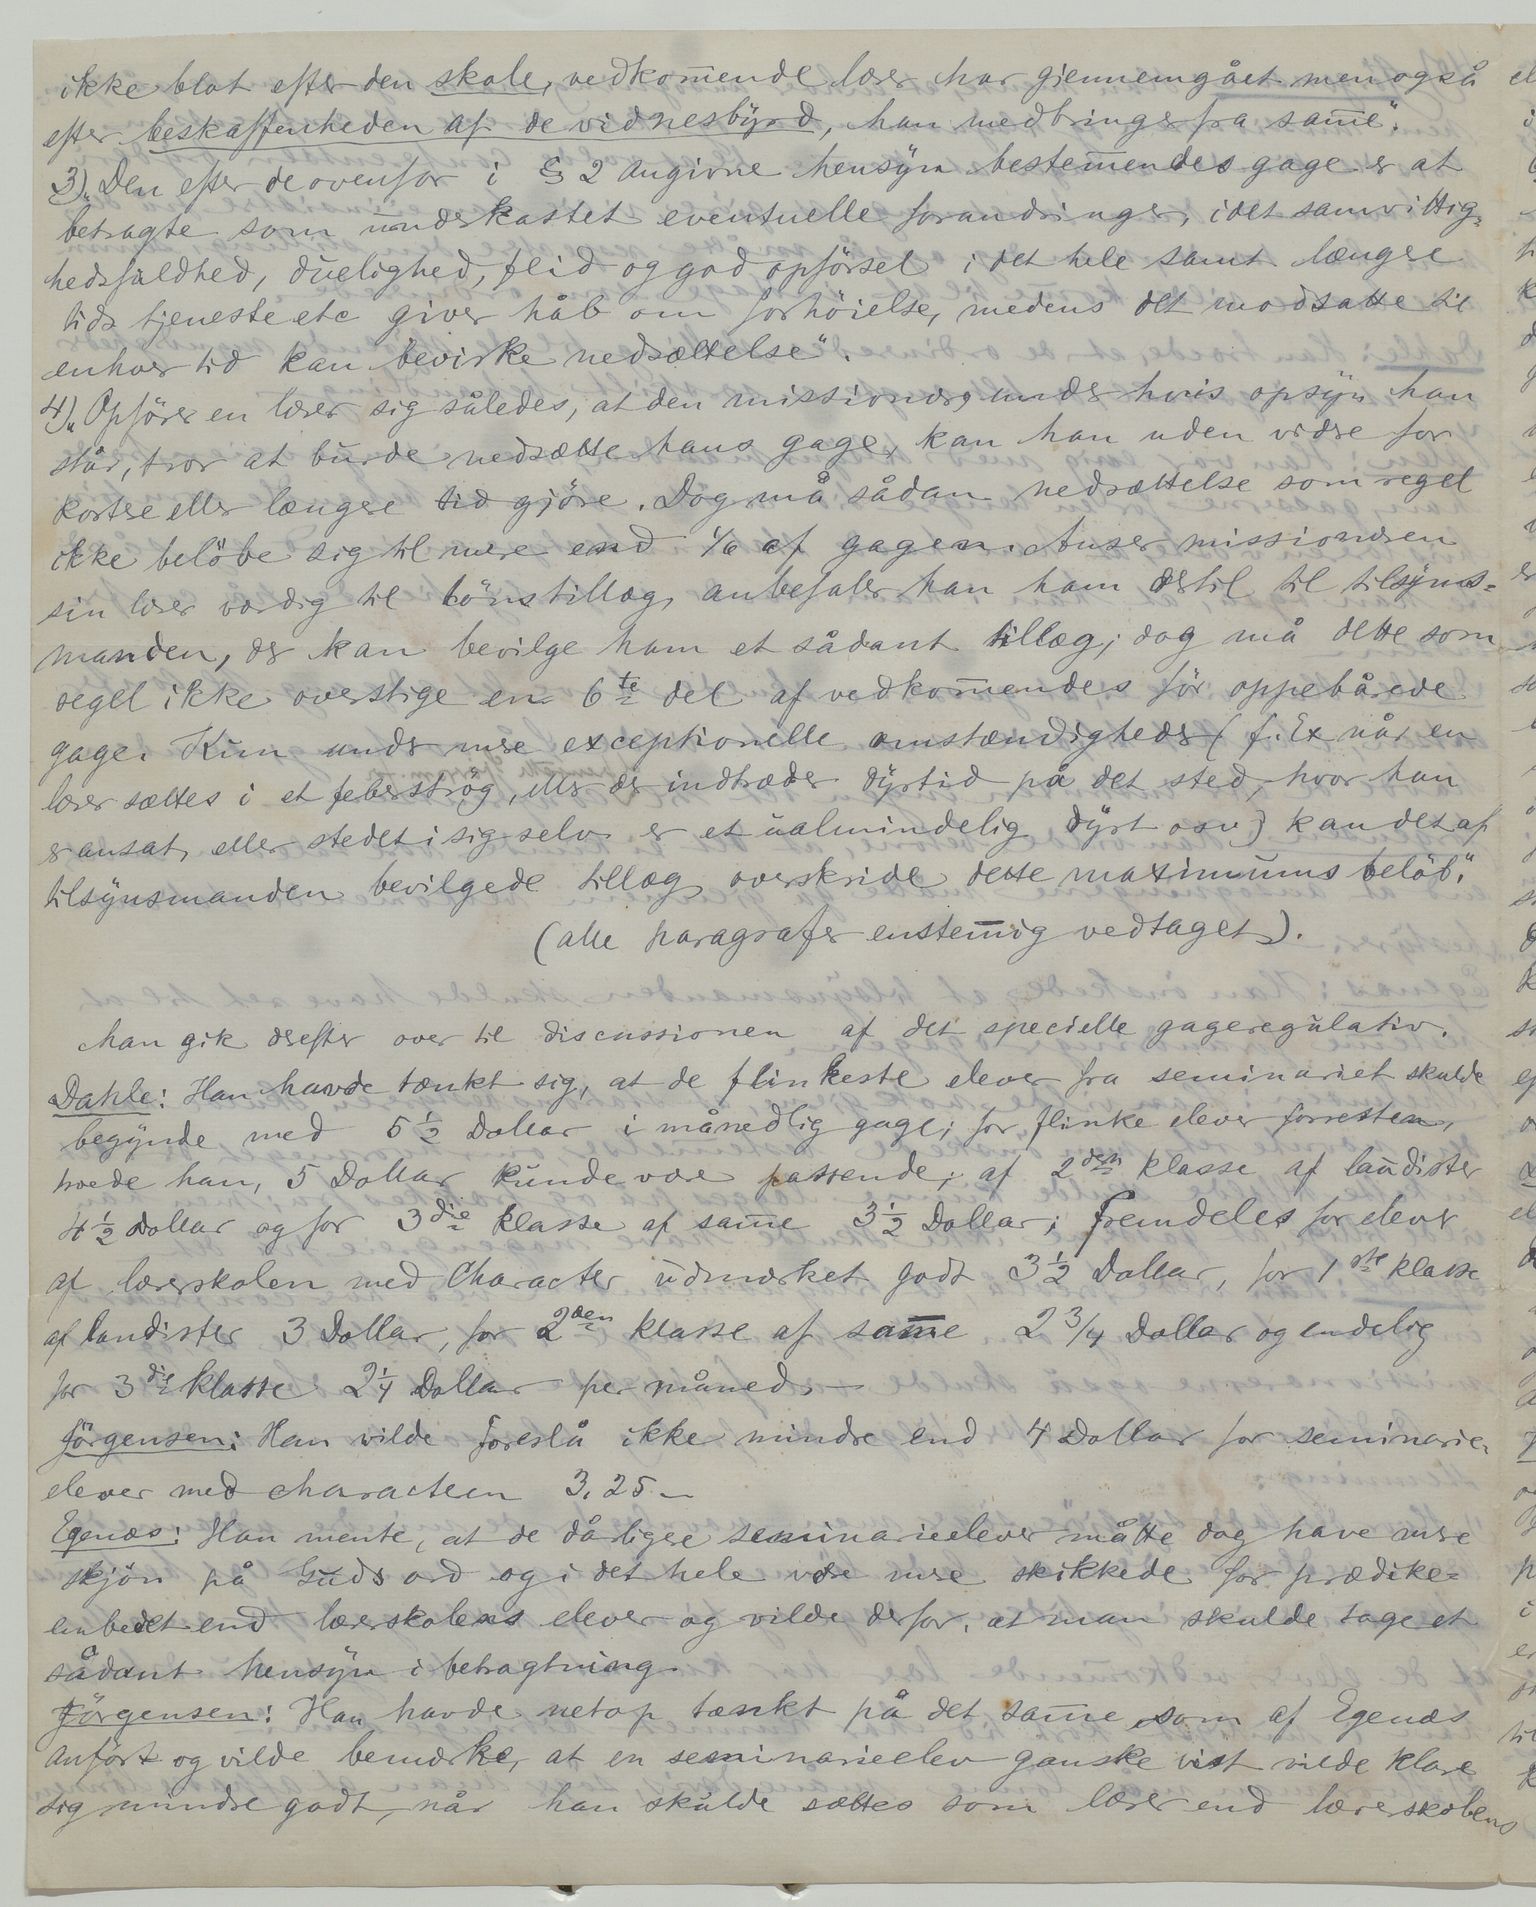 ikke blot efter den skole, vedkom̄ende lærer har gjennemgået men også
efter beskaffenheden af de vidnesbyrd, han medbringer fra sam̄e".
3) "Den efter de ovenfor i § 2 angivne hensyn bestem̄endes gage er at
betragte som underkastet eventuelle forandringer, idet samvittig-
hedsfuldhed, duelighed, flid og god opførsel i det hele samt længre
tids tjeneste etc giver håb om forhöielse, medens det modsatte til
enhver tid kan bevirke nedsættelse".
4) "Opförer en lærer sig således, at den missionær, under hvis opsyn han
står, tror at burde nedsætte hans gage, kan han uden videre for
kortere eller længere tid gjöre. Dog må sådan nedsættelse som regel
ikke belöbe sig til mere end 1/6 af gagen. Anser missionæren
sin lærer værdig til lönstillæg, anbefaler han ham dertil til tilsyns-
manden, der kan bevilge ham et sådant tillæg; dog må dette som
regel ikke overstige en 6te del af vedkom̄endes för oppebårede
gage. Kun under mere exceptionelle omstændigheder (f. Ex når en
lærer sættes i et feberströg, eller der indtræder dyrtid på det sted, hvor han
er ansat, eller stedet i sig selv er et ualmindelig dyrt osv) kan det af
tilsynsmanden bevilgede tillæg overskride dette maximums belöb."
(alle paragrafer enstem̄ig vedtaget).
Man gik derefter over til discussionen af det specielle gageregulativ.
Dahle: Han havde tænkt sig, at de flinkeste elever fra seminariet skulde
begynde med 5 1/2 Dollar i månedlig gage; for flinke elever forresten,
troede han, 5 Dollar kunde være passende; af 2den klasse af laudister
4 1/2 Dollar og for 3die klasse af sam̄e 3 1/2 Dollar; fremdeles for elever
af lærerskolen med Character udmærket godt 3 1/2 Dollar, for 1ste klasse
af laudister 3 Dollar, for 2den klasse af sam̄e 2 3/4 Dollar og endelig
for 3die klasse 2 1/4 Dollar per måned. –
Jörgensen: Han vilde foreslå ikke mindre end 4 Dollar for seminarie-
elever med characteren 3,25. –
Egenæs: Han mente, at de dårligere seminarieelever måtte dog have mere
skjön på Guds ord og i det hele være mere skikkede for prædike-
embedet end lærerskolens elever og vilde derfor, at man skulde tage et
sådant hensyn i betragtning.
Jörgensen: Han havde netop tænkt på det sam̄e, som af Egenæs
anfört og vilde bemærke, at en seminarieelev ganske vist vilde klare
sig mindre godt, når han skulde sættes som lærer end lærerskolens